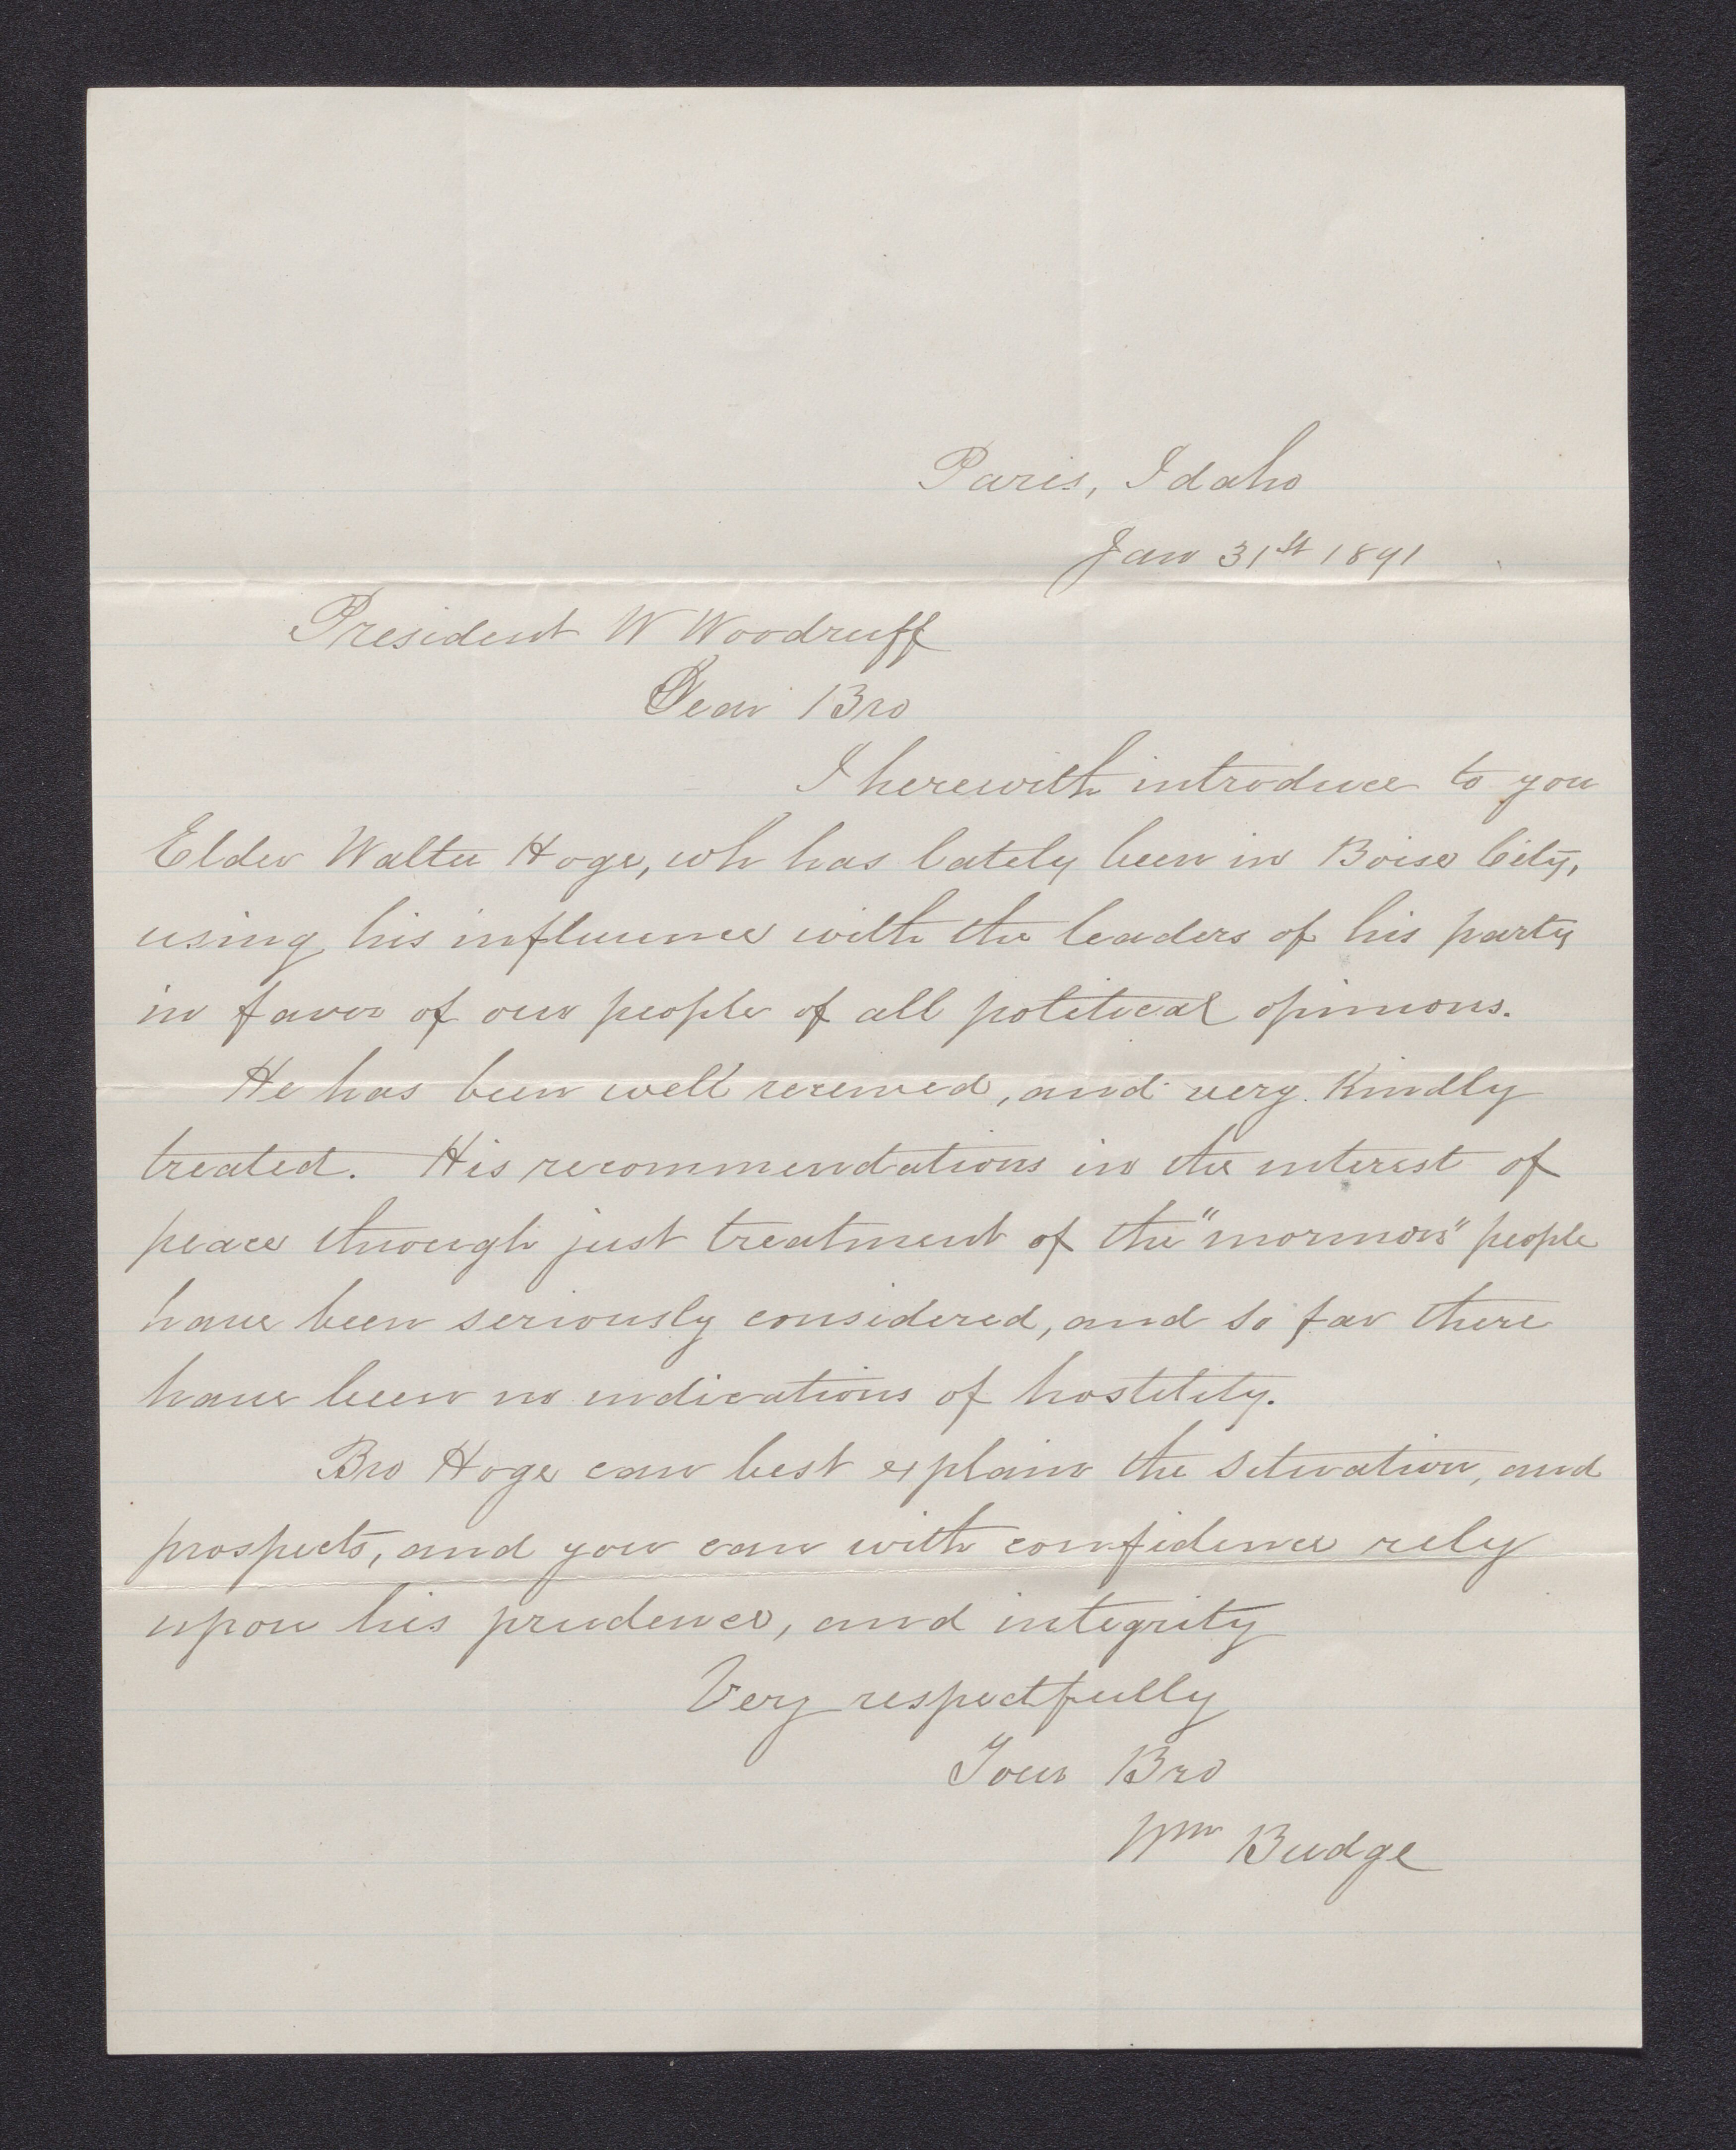 Paris, Idaho
Jan 31st 1891
President W Woodruff
Dear Bro
I herewith introduce to you
Elder Walter Hoge, wh has lately been in Boise City,
using his influence with the leaders of his party
in favor of our people of all political opinions.
He has been well received, and very kindly
treated. His recommendations in the interest of
peace through just treatment of the "mormon" people
have been seriously considered, and so far there
have been no indications of hostility.
Bro Hoge can best explain the situation, and
prospects, and you can with confidence rely
upon his prudence, and integrity
Very respectfully
Your Bro
Wm Budge